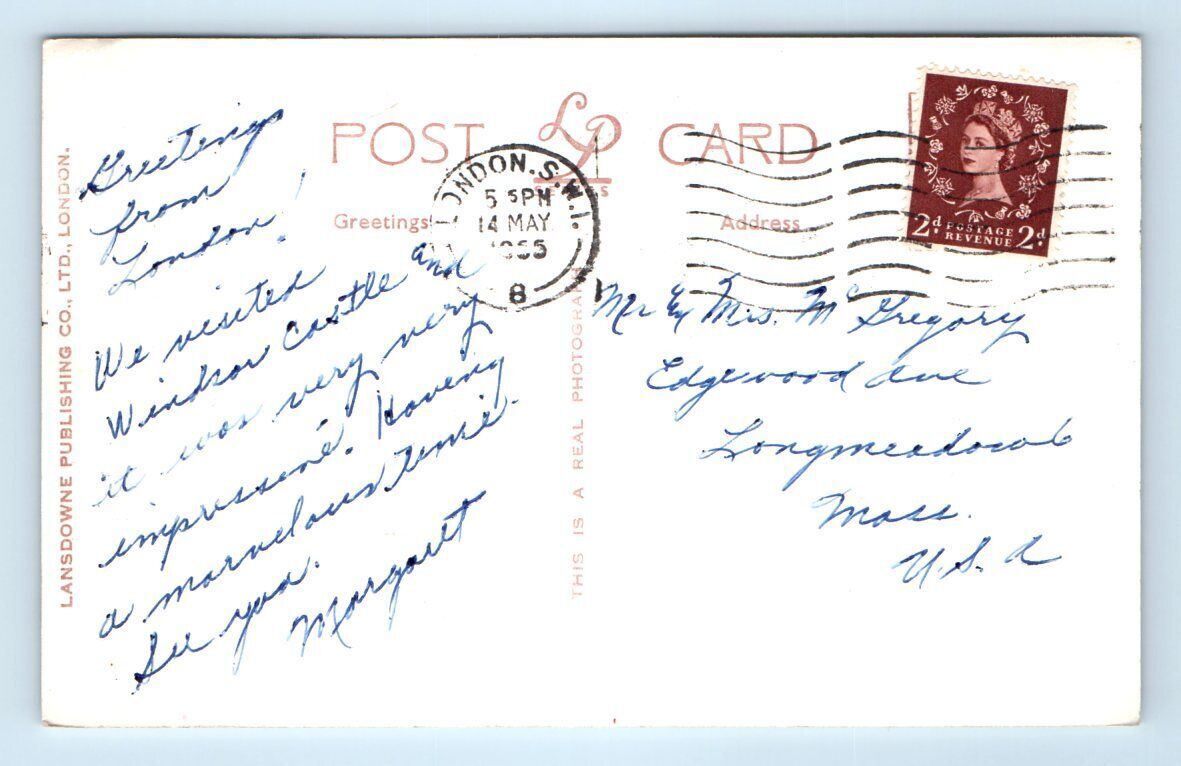 LANSDOWNE PUBLISHING CO., LTD., LONDON.
POST CARD
LP
Greetings
Address
THIS IS A REAL PHOTOGRAPH
LONDON. S.W.1.
5 15 PM
14 MAY
1955
8
2d POSTAGE REVENUE 2d
Greetings
from
London!
We visited
Windsor Castle and
it was very very
impressive. Having
a marvelous time.
See you.
Margaret
Mr & Mrs. McGregory
Edgewood Ave
Longmeadow 6
Mass.
U.S.A